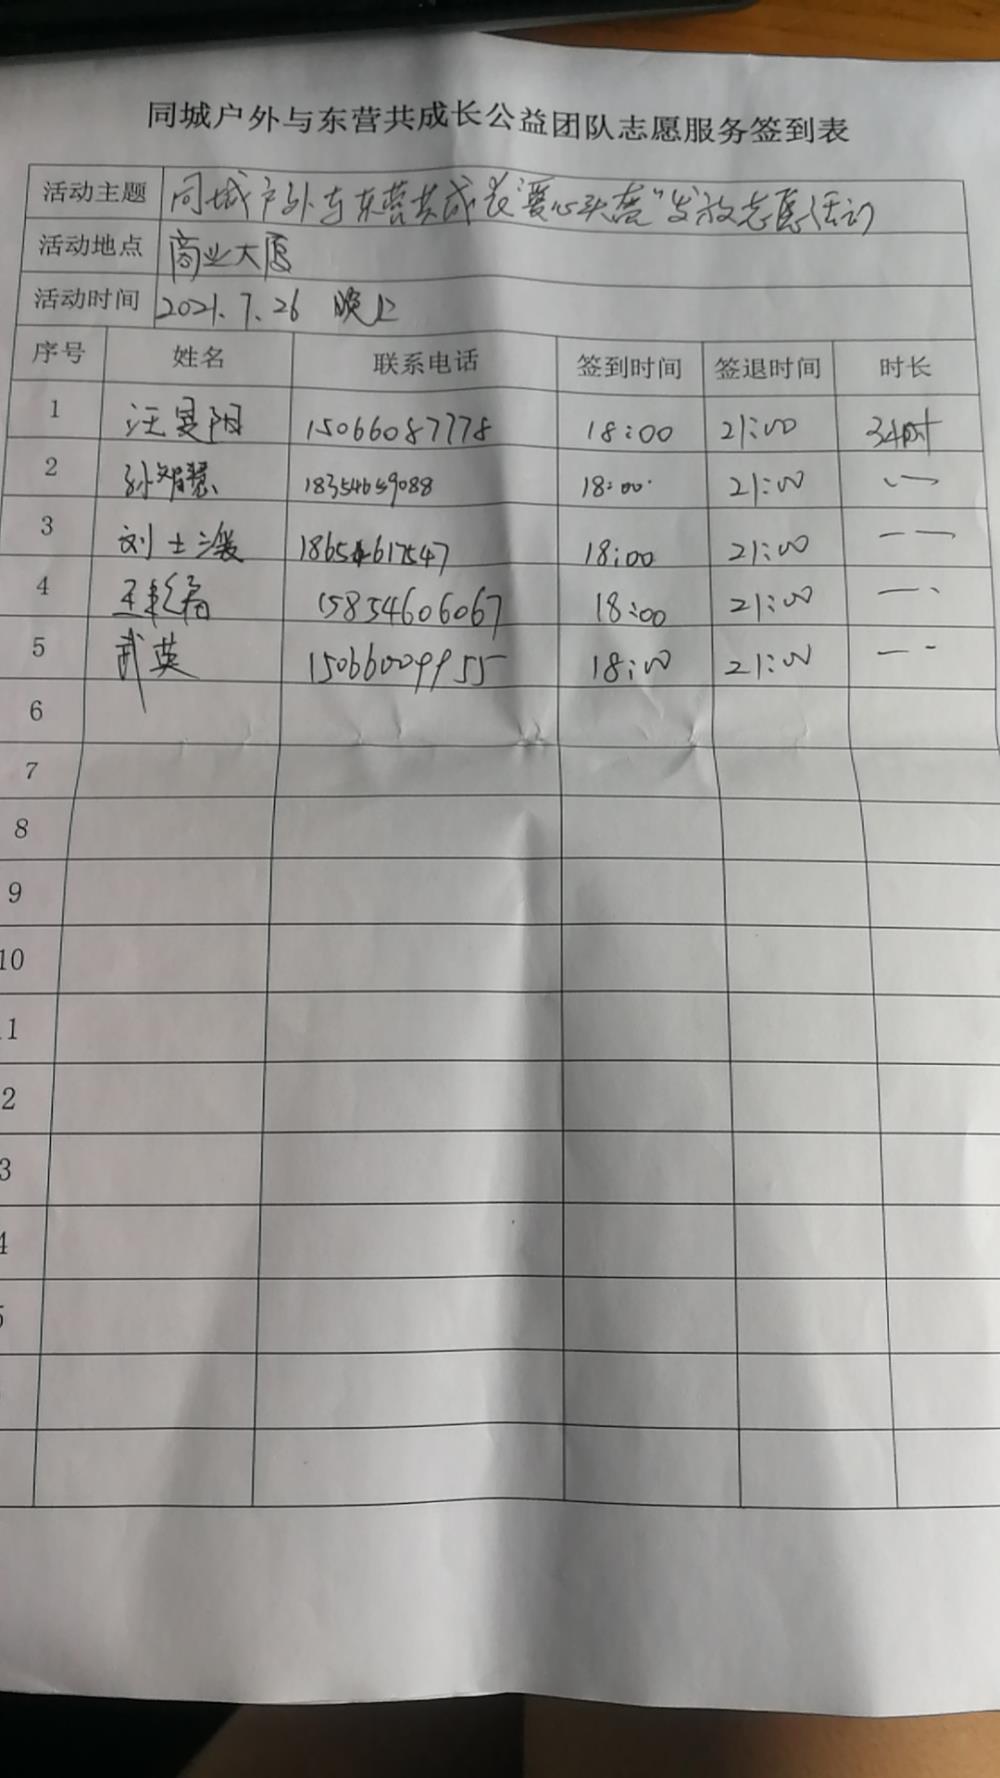 同城户外与东营共成长公益团队志愿服务签到表
活动主题 同城户外与东营共成长"爱心头盔"发放志愿活动
活动地点 商业大厦
活动时间 2021.7.26 晚上
序号 姓名 联系电话 签到时间 签退时间 时长
1 汪昱阳 15066087778 18:00 21:00 3小时
2 孙智慧 18354659088 18:00 21:00
3 刘士 18654617547 18:00 21:00
4 王 15854606067 18:00 21:00
5 武英 15066009955 18:00 21:00
6
7
8
9
10
1
2
3
4
5